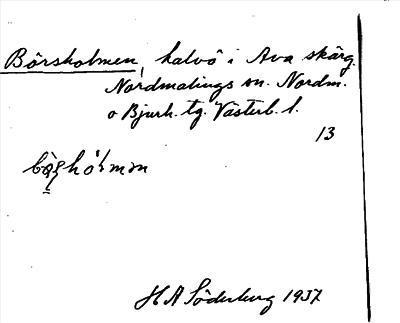 Börsholmen, halvö i Ava skärg.
Nordmalings sn. Nordm.
o Bjurh. tg. Västerb. l.
13
H A Söderberg 1937